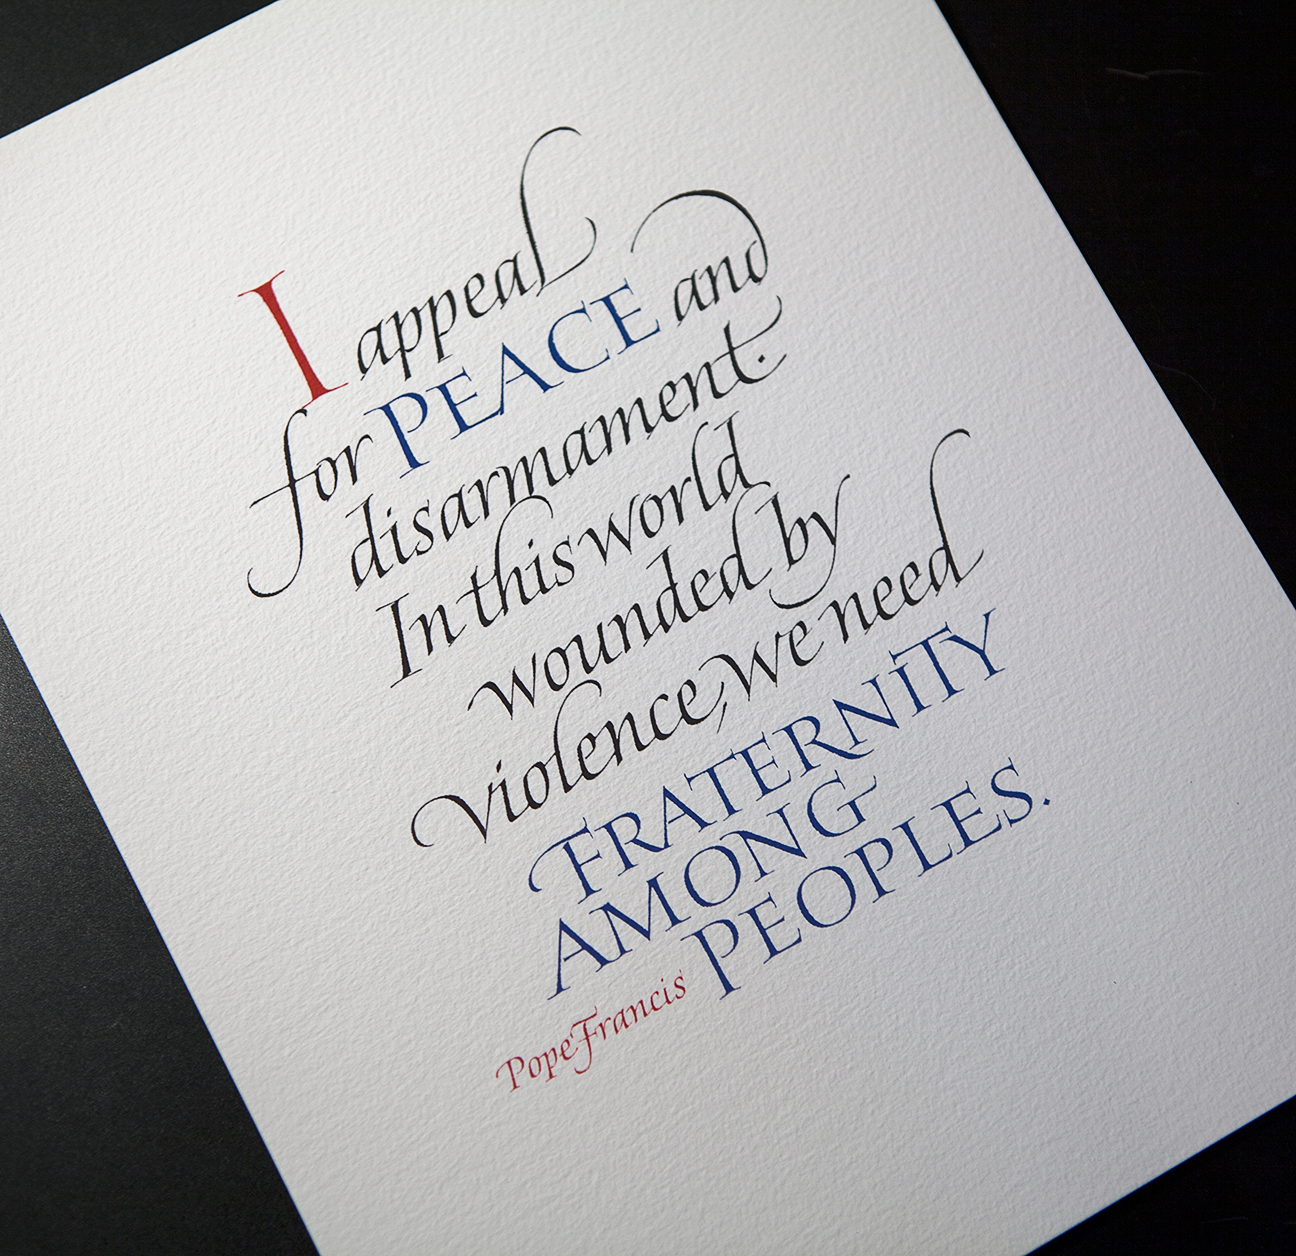 I appeal
for PEACE and
disarmament.
In this world
wounded by
violence, we need
FRATERNITY
AMONG
PEOPLES.
Pope Francis